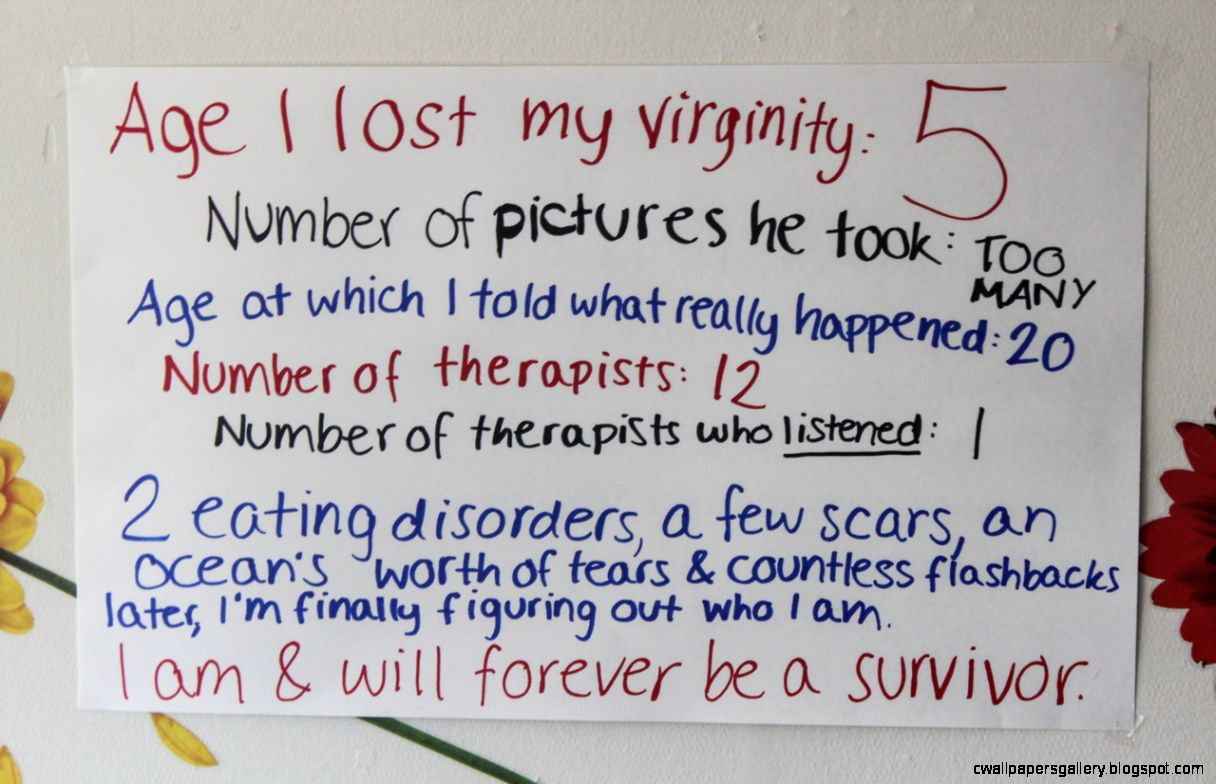 Age I lost my virginity: 5
Number of pictures he took: TOO
MANY
Age at which I told what really happened: 20
Number of therapists: 12
Number of therapists who listened: 1
2 eating disorders, a few scars, an
ocean's worth of tears & countless flashbacks
later, I'm finally figuring out who I am.
I am & will forever be a survivor.
cwallpapersgallery.blogspot.com